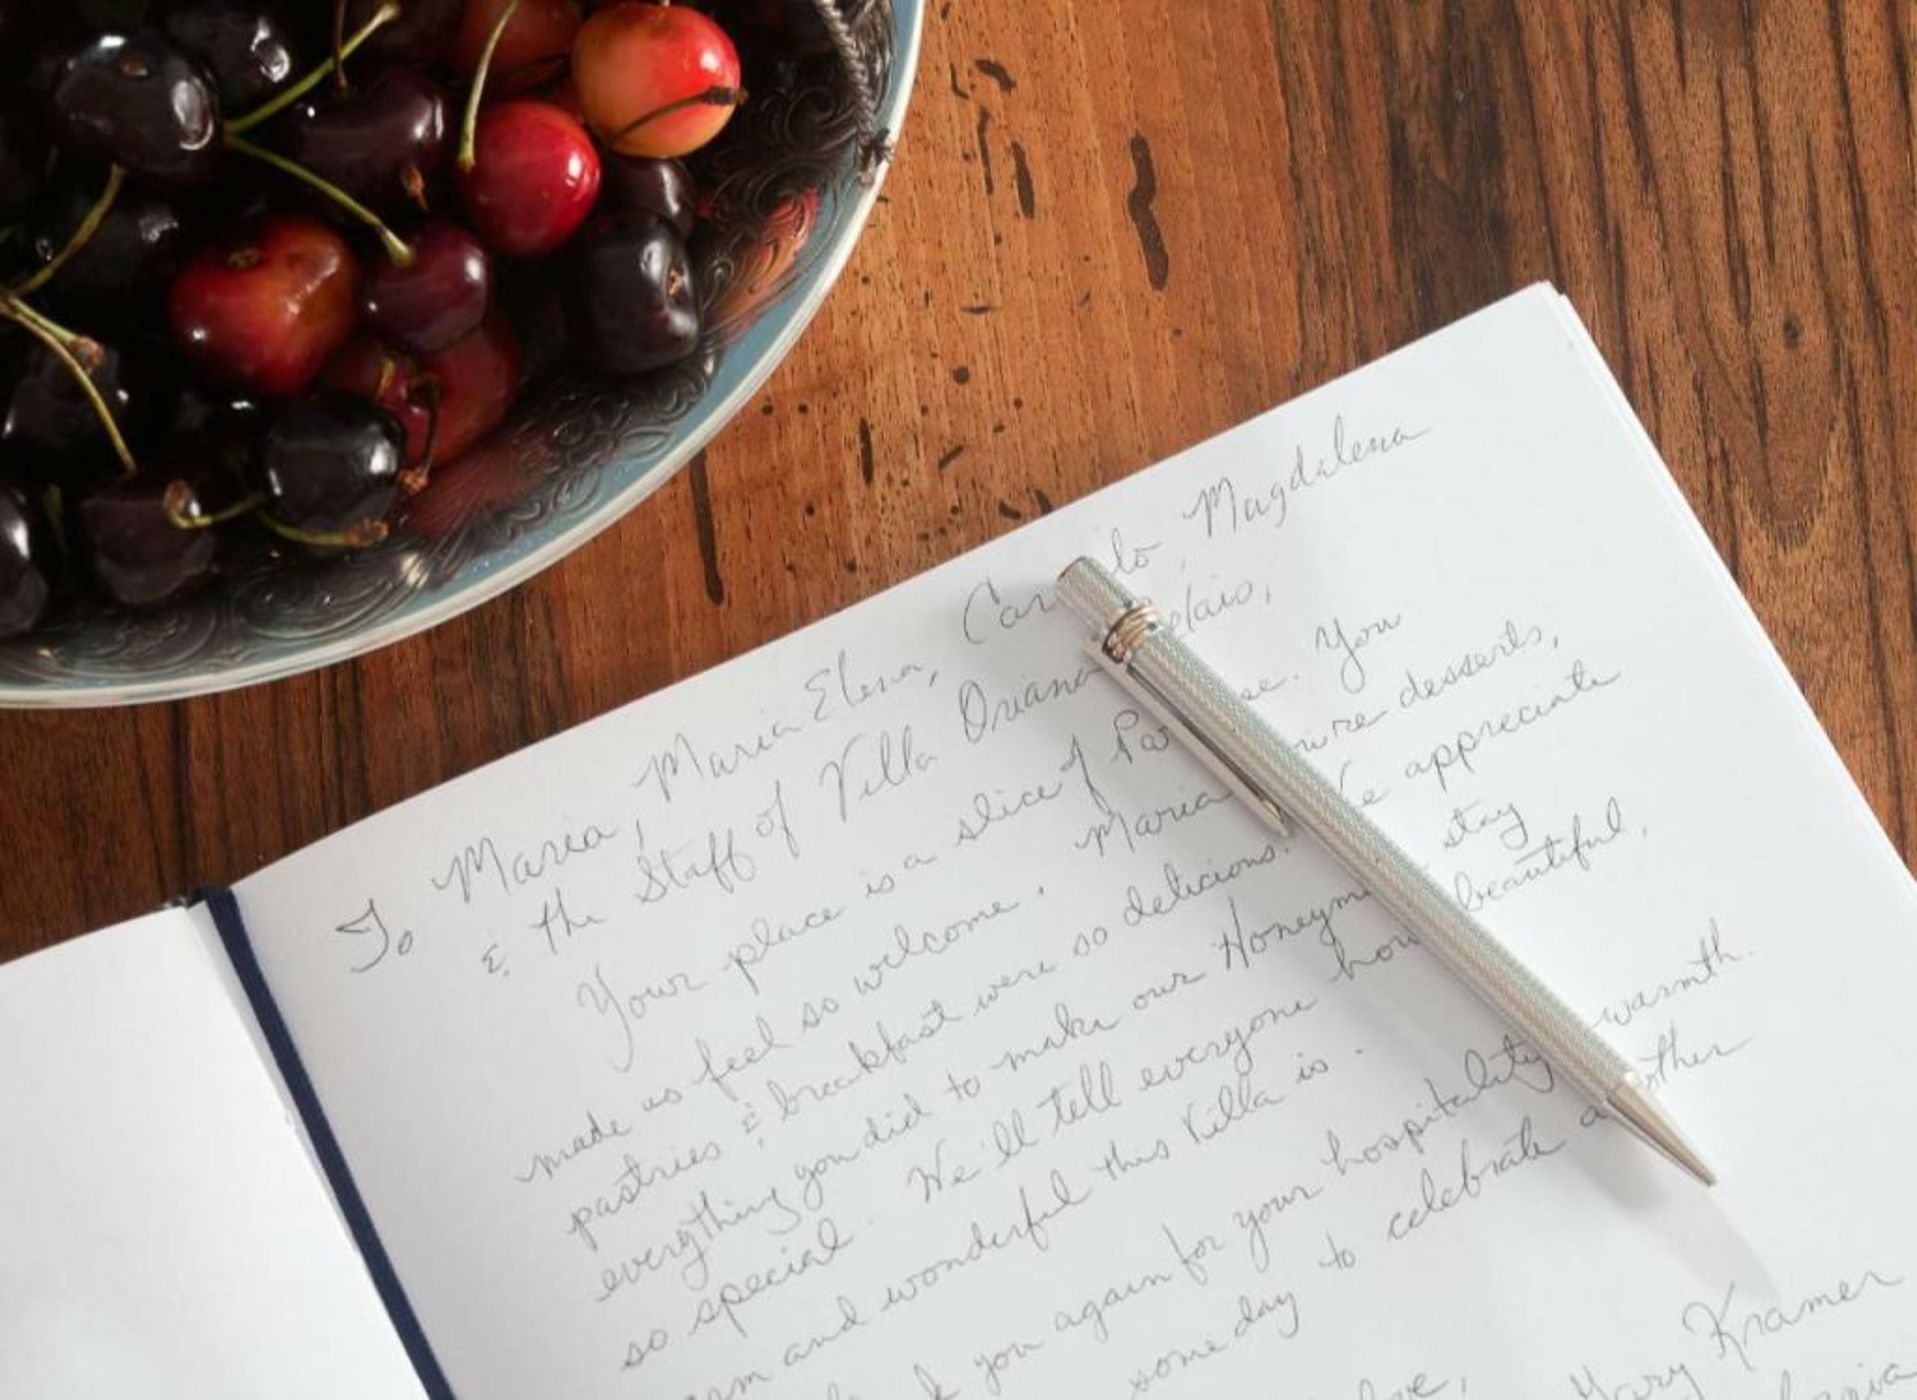 To Maria, Maria Elena, Magdalena
& the Staff of Villa Oriana
Your place is a slice of You
made us feel so welcome. Maria desserts,
pastries & breakfast were so delicious. appreciate
everything you did to make our stay
so special. We'll tell everyone how beautiful,
and wonderful this Villa is.
you again for your hospitality warmth.
some day to celebrate
Mary Kramer